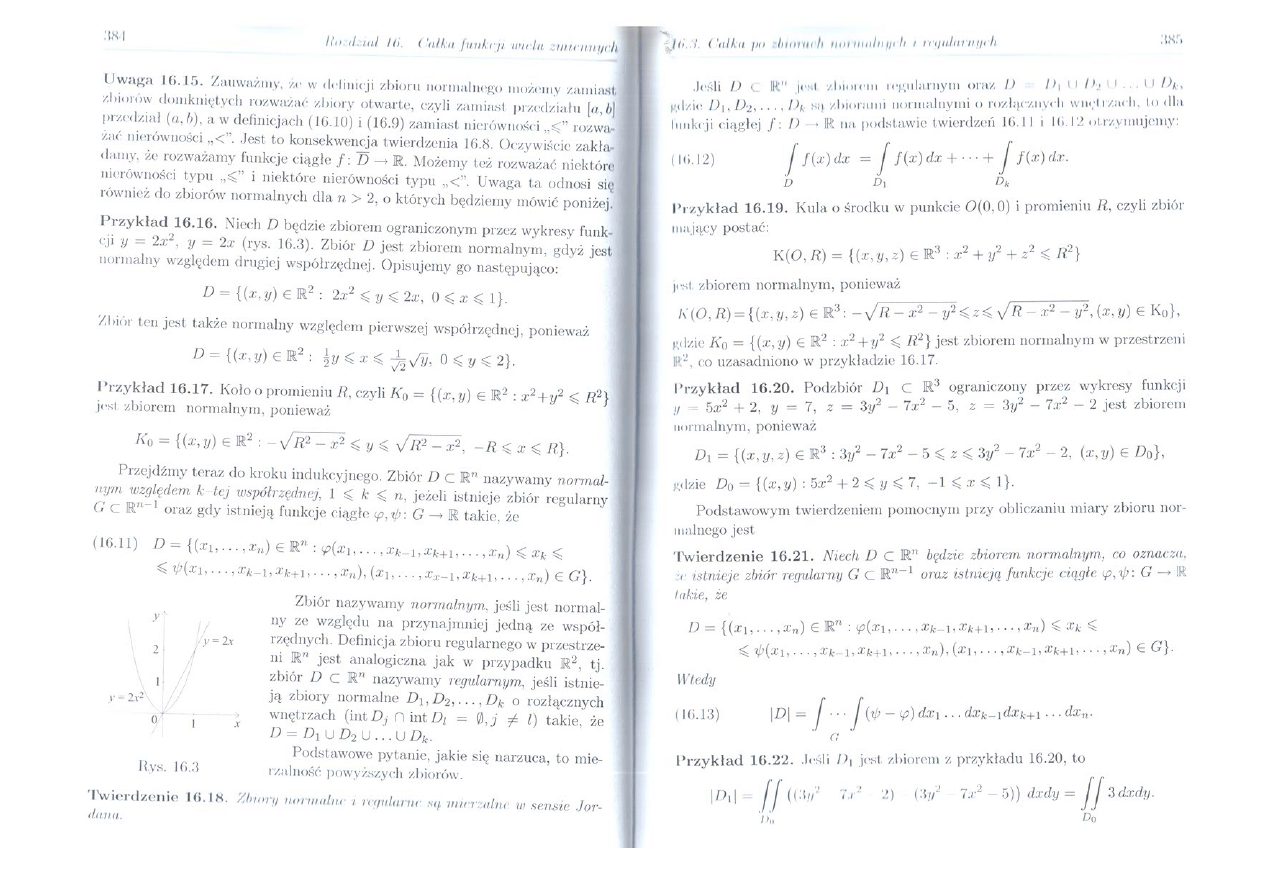 384
Rozdział 16. Całka funkcji wielu zmiennych
Uwaga 16.15. Zauważmy, że w definicji zbioru normalnego możemy zamiast
zbiorów domkniętych rozważać zbiory otwarte, czyli zamiast przedziału [a, b]
przedział (a, b), a w definicjach (16.10) i (16.9) zamiast nierówności „⩽” rozwa-
żać nierówności „<”. Jest to konsekwencja twierdzenia 16.8. Oczywiście zakła-
damy, że rozważamy funkcje ciągłe f: D̅ → ℝ. Możemy też rozważać niektóre
nierówności typu „⩽” i niektóre nierówności typu „<”. Uwaga ta odnosi się
również do zbiorów normalnych dla n > 2, o których będziemy mówić poniżej.
Przykład 16.16. Niech D będzie zbiorem ograniczonym przez wykresy funk-
cji y = 2x², y = 2x (rys. 16.3). Zbiór D jest zbiorem normalnym, gdyż jest
normalny względem drugiej współrzędnej. Opisujemy go następująco:
D = {(x, y) ∈ ℝ² : 2x² ⩽ y ⩽ 2x, 0 ⩽ x ⩽ 1}.
Zbiór ten jest także normalny względem pierwszej współrzędnej, ponieważ
D = {(x, y) ∈ ℝ² : ½y ⩽ x ⩽ 1/√2 √y, 0 ⩽ y ⩽ 2}.
Przykład 16.17. Koło o promieniu R, czyli K₀ = {(x, y) ∈ ℝ² : x²+y² ⩽ R²}
jest zbiorem normalnym, ponieważ
K₀ = {(x, y) ∈ ℝ² : −√(R² − x²) ⩽ y ⩽ √(R² − x²), −R ⩽ x ⩽ R}.
Przejdźmy teraz do kroku indukcyjnego. Zbiór D ⊂ ℝⁿ nazywamy normal-
nym względem k-tej współrzędnej, 1 ⩽ k ⩽ n, jeżeli istnieje zbiór regularny
G ⊂ ℝⁿ⁻¹ oraz gdy istnieją funkcje ciągłe φ, ψ: G → ℝ takie, że
(16.11) D = {(x₁, . . . , xₙ) ∈ ℝⁿ : φ(x₁, . . . , xₖ₋₁, xₖ₊₁, . . . , xₙ) ⩽ xₖ ⩽
⩽ ψ(x₁, . . . , xₖ₋₁, xₖ₊₁, . . . , xₙ), (x₁, . . . , xₓ₋₁, xₖ₊₁, . . . , xₙ) ∈ G}.
y
y = 2x
2
1
y = 2x²
0
1
x
Rys. 16.3
Zbiór nazywamy normalnym, jeśli jest normal-
ny ze względu na przynajmniej jedną ze współ-
rzędnych. Definicja zbioru regularnego w przestrze-
ni ℝⁿ jest analogiczna jak w przypadku ℝ², tj.
zbiór D ⊂ ℝⁿ nazywamy regularnym, jeśli istnie-
ją zbiory normalne D₁, D₂, . . . , Dₖ o rozłącznych
wnętrzach (int Dⱼ ∩ int Dₗ = ∅, j ≠ l) takie, że
D = D₁ ∪ D₂ ∪ . . . ∪ Dₖ.
Podstawowe pytanie, jakie się narzuca, to mie-
rzalność powyższych zbiorów.
Twierdzenie 16.18. Zbiory normalne i regularne są mierzalne w sensie Jor-
dana.
16.3. Całka po zbiorach normalnych i regularnych
385
Jeśli D ⊂ ℝⁿ jest zbiorem regularnym oraz D = D₁ ∪ D₂ ∪ . . . ∪ Dₖ,
gdzie D₁, D₂, . . . , Dₖ są zbiorami normalnymi o rozłącznych wnętrzach, to dla
funkcji ciągłej f: D → ℝ na podstawie twierdzeń 16.11 i 16.12 otrzymujemy:
(16.12) ∫_D f(x) dx = ∫_D₁ f(x) dx + · · · + ∫_Dₖ f(x) dx.
Przykład 16.19. Kula o środku w punkcie O(0, 0) i promieniu R, czyli zbiór
mający postać:
K(O, R) = {(x, y, z) ∈ ℝ³ : x² + y² + z² ⩽ R²}
jest zbiorem normalnym, ponieważ
K(O, R) = {(x, y, z) ∈ ℝ³ : −√(R − x² − y²) ⩽ z ⩽ √(R − x² − y²), (x, y) ∈ K₀},
gdzie K₀ = {(x, y) ∈ ℝ² : x² + y² ⩽ R²} jest zbiorem normalnym w przestrzeni
ℝ², co uzasadniono w przykładzie 16.17.
Przykład 16.20. Podzbiór D₁ ⊂ ℝ³ ograniczony przez wykresy funkcji
y = 5x² + 2, y = 7, z = 3y² − 7x² − 5, z = 3y² − 7x² − 2 jest zbiorem
normalnym, ponieważ
D₁ = {(x, y, z) ∈ ℝ³ : 3y² − 7x² − 5 ⩽ z ⩽ 3y² − 7x² − 2, (x, y) ∈ D₀},
gdzie D₀ = {(x, y) : 5x² + 2 ⩽ y ⩽ 7, −1 ⩽ x ⩽ 1}.
Podstawowym twierdzeniem pomocnym przy obliczaniu miary zbioru nor-
malnego jest
Twierdzenie 16.21. Niech D ⊂ ℝⁿ będzie zbiorem normalnym, co oznacza,
że istnieje zbiór regularny G ⊂ ℝⁿ⁻¹ oraz istnieją funkcje ciągłe φ, ψ: G → ℝ
takie, że
D = {(x₁, . . . , xₙ) ∈ ℝⁿ : φ(x₁, . . . , xₖ₋₁, xₖ₊₁, . . . , xₙ) ⩽ xₖ ⩽
⩽ ψ(x₁, . . . , xₖ₋₁, xₖ₊₁, . . . , xₙ), (x₁, . . . , xₖ₋₁, xₖ₊₁, . . . , xₙ) ∈ G}.
Wtedy
(16.13) |D| = ∫ · · · ∫_G (ψ − φ) dx₁ . . . dxₖ₋₁dxₖ₊₁ . . . dxₙ.
Przykład 16.22. Jeśli D₁ jest zbiorem z przykładu 16.20, to
|D₁| = ∬_D₀ ((3y² − 7x² − 2) − (3y² − 7x² − 5)) dxdy = ∬_D₀ 3 dxdy.